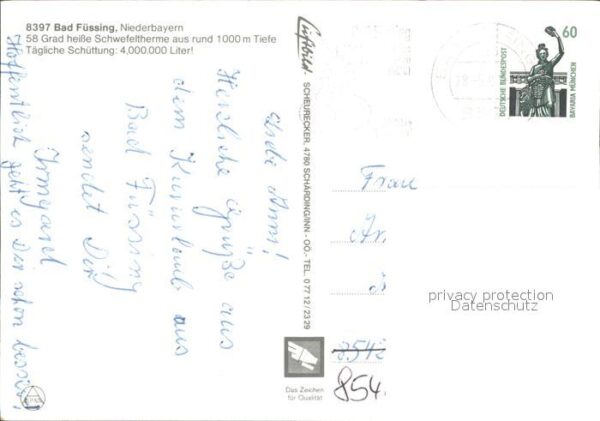 8397 Bad Füssing, Niederbayern
58 Grad heiße Schwefeltherme aus rund 1000 m Tiefe
Tägliche Schüttung: 4,000.000 Liter!
Liebe Anni!
Herzliche Grüße aus
dem Kururlaub aus
Bad Füssing
sendet Dir
Irmgard
Hoffentlich geht es Dir schon besser!
Luftbild - SCHEURECKER, 4780 SCHÄRDING/INN - OÖ. - TEL. 0 77 12 / 23 29
60
DEUTSCHE BUNDESPOST
BAVARIA MÜNCHEN
Frau
privacy protection
Datenschutz
8542
854.
Das Zeichen
für Qualität